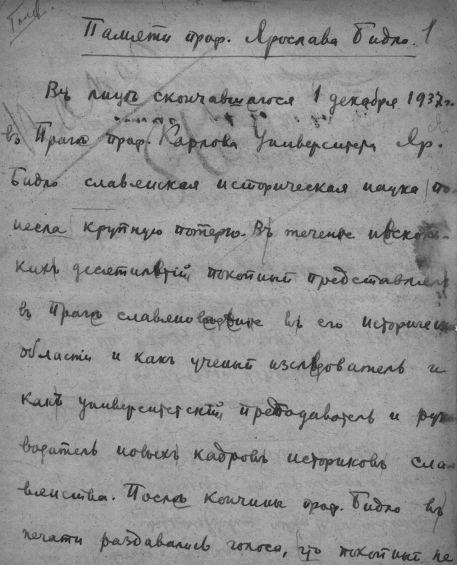 Памяти проф. Ярослава Бидло. 1
Въ лицѣ скончавшагося 1 декабря 1937 г.
въ Прагѣ проф. Карлова Университета Яр.
Бидло славянская историческая наука по-
несла крупную потерю. Въ течение несколь-
кихъ десятилѣтій покойный представлялъ
въ Прагѣ славяноведение въ его исторической
области и какъ ученый изслѣдователь и
какъ университетскій преподаватель и руко-
водитель новыхъ кадровъ историковъ сла-
вянства. Послѣ кончины проф. Бидло въ
печати раздавались голоса, что покойный не